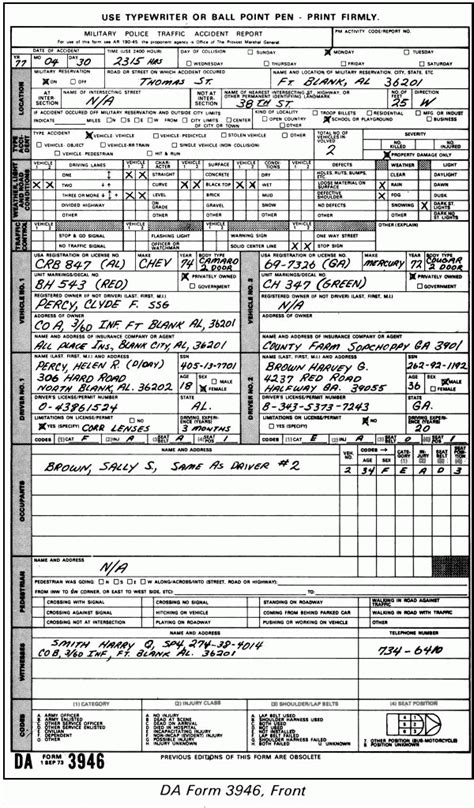 USE TYPEWRITER OR BALL POINT PEN - PRINT FIRMLY.
MILITARY POLICE TRAFFIC ACCIDENT REPORT
For use of this form see AR 190-45 the proponent agency is Office of The Provost Marshal General
PM ACTIVITY CODE/REPORT NO.
DATE OF ACCIDENT
TIME (USE 2400 HOUR)
DAY OF COLLISION
SUNDAY
MONDAY
TUESDAY
YR 77 MO 04 DAY 30
2315 HRS
WEDNESDAY
THURSDAY
FRIDAY
SATURDAY
LOCATION
MILITARY RESERVATION
ON
OFF
ROAD OR STREET ON WHICH ACCIDENT OCCURRED
THOMAS ST.
NAME AND LOCATION OF MILITARY RESERVATION, CITY, STATE, ETC
FT. BLANK AL, 36201
AT INTERSECTION
NAME OF INTERSECTING STREET
N/A
NOT AT INTERSECTION
NAME OF NEAREST INTERSECTING ST, HIGHWAY, OR OTHER PERMANENT IDENTIFYING LANDMARK
38TH ST.
NO OF FEET
25
DIRECTION
W
IF ACCIDENT OCCURRED OFF MILITARY RESERVATION AND OUTSIDE CITY LIMITS
INDICATE MILES N E S W FROM CITY LIMITS CENTER OF CITY OR TOWN
KIND OF LOCALITY
OPEN COUNTRY
TROOP BILLETS
SCHOOL OR PLAYGROUND
RESIDENTIAL
MFG OR INDUST
BUSINESS
TYPE ACCIDENT
VEHICLE VEHICLE
VEHICLE PEDICYCLE
STOLEN VEHICLE
OTHER
VEHICLE OBJECT
VEHICLE-RR TRAIN
SINGLE VEHICLE (NON COLLISION)
VEHICLE PEDESTRIAN
HIT & RUN
TOTAL NO OF VEHICLES INVOLVED
2
SEVERITY
NO. KILLED
NO. INJURED
PROPERTY DAMAGE ONLY
DRIVING LANES
CHARACTER
SURFACE
CONDITION
DEFECTS
WEATHER
LIGHT
ONE
STRAIGHT
CONCRETE
DRY
HOLES, RUTS, BUMPS, ETC.
CLEAR
DAY
TWO
CURVE
BLACK TOP
WET
LOOSE MATERIAL ON SURFACE
RAIN
DAWN
THREE OR MORE
LEVEL
BRICK
MUD
DEFECTIVE SHOULDER
FOG
DUSK
DIVIDED HIGHWAY
ON GRADE
GRAVEL
SNOW
NO DEFECTS
SNOWING
DARK ST. LIGHTS
OTHER
OTHER
OTHER
OTHER
DARK NO ST LIGHTS
TRAFFIC CONTROL
STOP & GO SIGNAL
FLASHING LIGHT
WARNING SIGN
ONE WAY STREET
NO TRAFFIC SIGNAL
OFFICER OR WATCHMAN
SOLID CENTER LINE
STOP SIGN
OTHER (EXPLAIN)
VEHICLE NO. 1
USA REGISTRATION OR LICENSE NO.
MAKE
YEAR
BODY TYPE
CRB 847 (AL)
CHEV
74
CAMARO 2 DOOR
UNIT MARKINGS/DECAL NO
BH 543 (RED)
PRIVATELY OWNED
GOVERNMENT
REGISTERED OWNER (IF NOT DRIVER) (LAST, FIRST, M.I.)
PERCY, CLYDE F. SSG
ADDRESS OF OWNER
CO A, 3/60 INF FT BLANK AL, 36201
NAME AND ADDRESS OF INSURANCE COMPANY OR AGENT
ALL PLACE INS, BLANK CITY, AL, 36201
VEHICLE NO. 2
USA REGISTRATION OR LICENSE NO.
MAKE
YEAR
BODY TYPE
69-7326 (GA)
MERCURY
72
COUGAR 2 DOOR
UNIT MARKINGS/DECAL NO
CH 347 (GREEN)
PRIVATELY OWNED
GOVERNMENT
REGISTERED OWNER (IF NOT DRIVER) (LAST, FIRST, M.I.)
N/A
ADDRESS OF OWNER
NAME AND ADDRESS OF INSURANCE COMPANY OR AGENT
COUNTY FARM SOPCHOPPY GA 3901
DRIVER NO. 1
NAME (LAST, FIRST, M.I.) AND ADDRESS
PERCY, HELEN R. (D/DAY)
306 HARD ROAD
NORTH BLANK, AL. 36202
SSN
405-13-7701
AGE
18
SEX
MALE
FEMALE
DRIVER'S LICENSE/PERMIT NUMBER
0-43861524
STATE
AL.
LIMITATIONS ON LICENSE/PERMIT
NO
YES (SPECIFY)
CORR LENSES
DRIVING EXPERIENCE (YEARS)
3 MONTHS
DRIVER NO. 2
NAME (LAST, FIRST, M.I.) AND ADDRESS
BROWN HARVEY G.
4237 RED ROAD
HALFWAY GA. 39055
SSN
262-92-1192
AGE
36
SEX
MALE
FEMALE
DRIVER'S LICENSE/PERMIT NUMBER
B-343-5373-7243
STATE
GA.
LIMITATIONS ON LICENSE/PERMIT
YES (SPECIFY)
NO
DRIVING EXPERIENCE (YEARS)
20
CODES
OCCUPANTS
NAME AND ADDRESS
VEH. NO.
CODES
AGE
SEX
CATEGORY
INJURY
SEAT BELT
SEAT POSITION
BROWN, SALLY S, SAME AS DRIVER #2
2 34 F E A D 3
PEDESTRIAN
NAME AND ADDRESS
N/A
PEDESTRIAN WAS GOING N S E W ALONG/ACROSS/INTO (STREET, ROAD OR HIGHWAY):
FROM (NW TO SW CORNER, OR EAST TO WEST SIDE, ETC):
CROSSING WITH SIGNAL
CROSSING NO SIGNAL
STANDING ON ROADWAY
WALKING IN ROAD AGAINST TRAFFIC
CROSSING AGAINST SIGNAL
HITCHING ON VEHICLE
COMING FROM BEHIND PARKED CAR
WALKING IN ROAD WITH TRAFFIC
CROSSING NOT AT INTERSECTION
PLAYING ON ROADWAY
PUSHING OR WORKING ON VEHICLE
OTHER
WITNESSES
NAME AND ADDRESS
TELEPHONE NUMBER
SMITH HARRY Q, SP4, 274-38-4014
CO B, 3/60 INF, FT. BLANK AL. 36201
734-6410
CODES
(1) CATEGORY
(2) INJURY CLASS
(3) SHOULDER/LAP BELTS
(4) SEAT POSITION
A ARMY OFFICER
B ARMY ENLISTED
C OTHER SERVICE OFFICER
D OTHER SERVICE ENLISTED
E CIVILIAN
F DEPENDENT
G OTHER
A NO INJURY
B DEAD AT SCENE
C DEAD ON ARRIVAL
D DIED IN HOSPITAL
G POSSIBLE INJURY
H INJURY UNKNOWN
A LAP BELT USED
B SHOULDER HARNESS USED
C BOTH USED
D NOT USED
E NOT INSTALLED
F LAP BELT FAILED
G SHOULDER HARNESS FAILED
H BOTH FAILED
I UNKNOWN
DA FORM 1 SEP 73 3946
PREVIOUS EDITIONS OF THIS FORM ARE OBSOLETE
DA Form 3946, Front